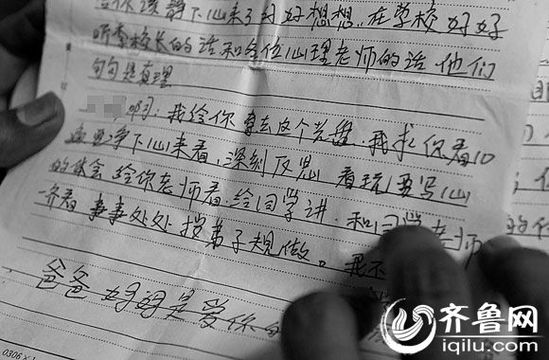 给你该静下心来了好好想想，在学校好好
听李校长的话和各位心理老师的话，他们
句句是真理
啊：我给你寄去这个光盘，我求你看10
遍要静下心来看，深刻反思 看玩要写心
的体会 给你老师看，给同学讲，和同学老师
一齐看 事事处处按弟子规做。我不
爸爸妈妈是爱你的
0306
齐鲁网
iqilu.com